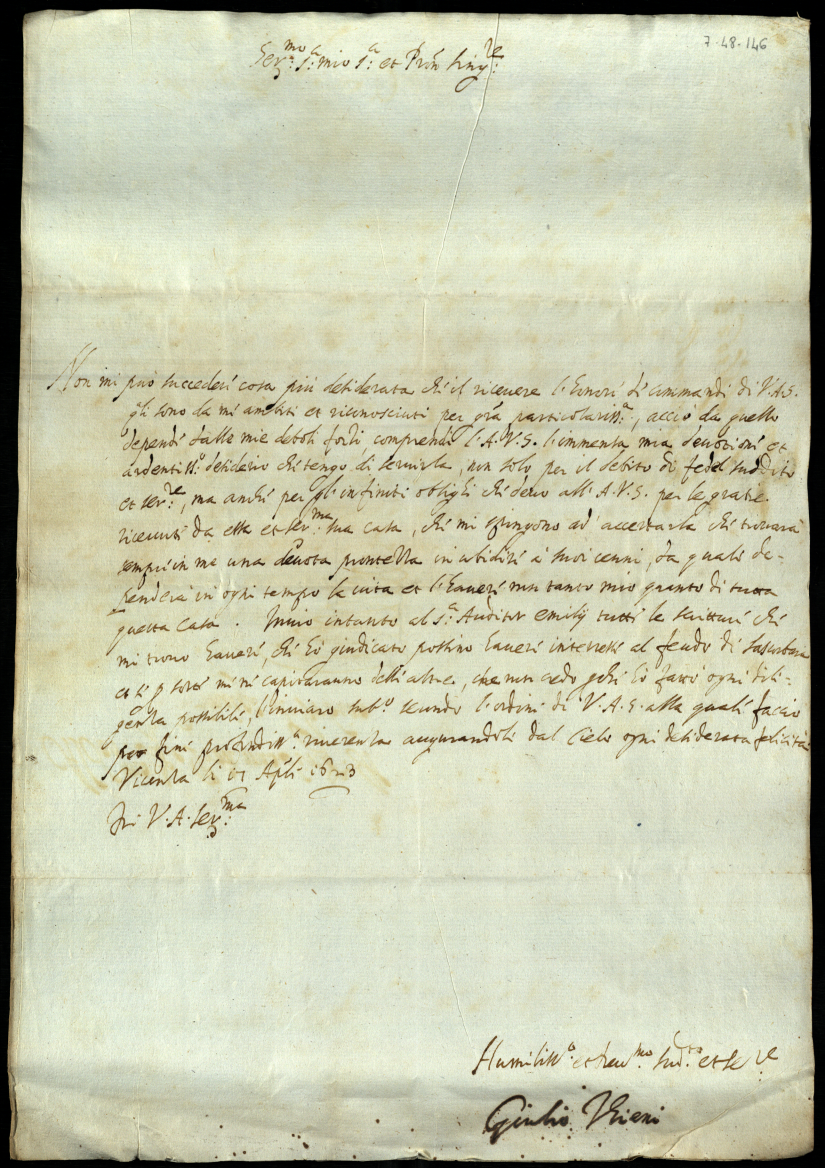 7-48-146
Ser.mo S.r mio S.r et Pron Sing.re
Non mi può succeder cosa più desiderata che il riceuere l'honor de commandi di V.A.S.
q.li sono da me ambiti et riconosciuti per gra particolariss.a, acciò da quello
dependi dalle mie deboli forze comprendi l'A.V.S. l'immensa mia deuotione et
ardentiss.o desiderio che tengo di seruirla, non solo per il debito di fedel suddito
et ser.re, ma anche per gl'infiniti oblighi che deuo all'A.V.S. per le gratie
riceuute da essa et ser.ma sua casa, che mi spingono ad accertarla che trouarà
sempre in me una deuota prontezza in ubidire a suoi cenni, da quali de-
penderà in ogni tempo la uita et l'hauere non tanto mio quanto di tutta
questa casa. Inuio intanto al S.r Auditor emilij tutte le scritture che
mi trouo hauere, che hò giudicato possino hauere interesse al feudo di
et se p sorte mi ne capitaranno dell'altre, che non credo, perche hò fatto ogni dili-
genza possibile, l'inuiarò sub.o secondo l'ordine di V.A.S. alla quale faccio
per fine profondiss.a riuerenza augurandole dal Cielo ogni desiderata felicità
Vicenza li Aple 1623
Di V.A. Ser.ma
Humiliss.o et deu.mo sud.to et se.re
Giulio Thieni